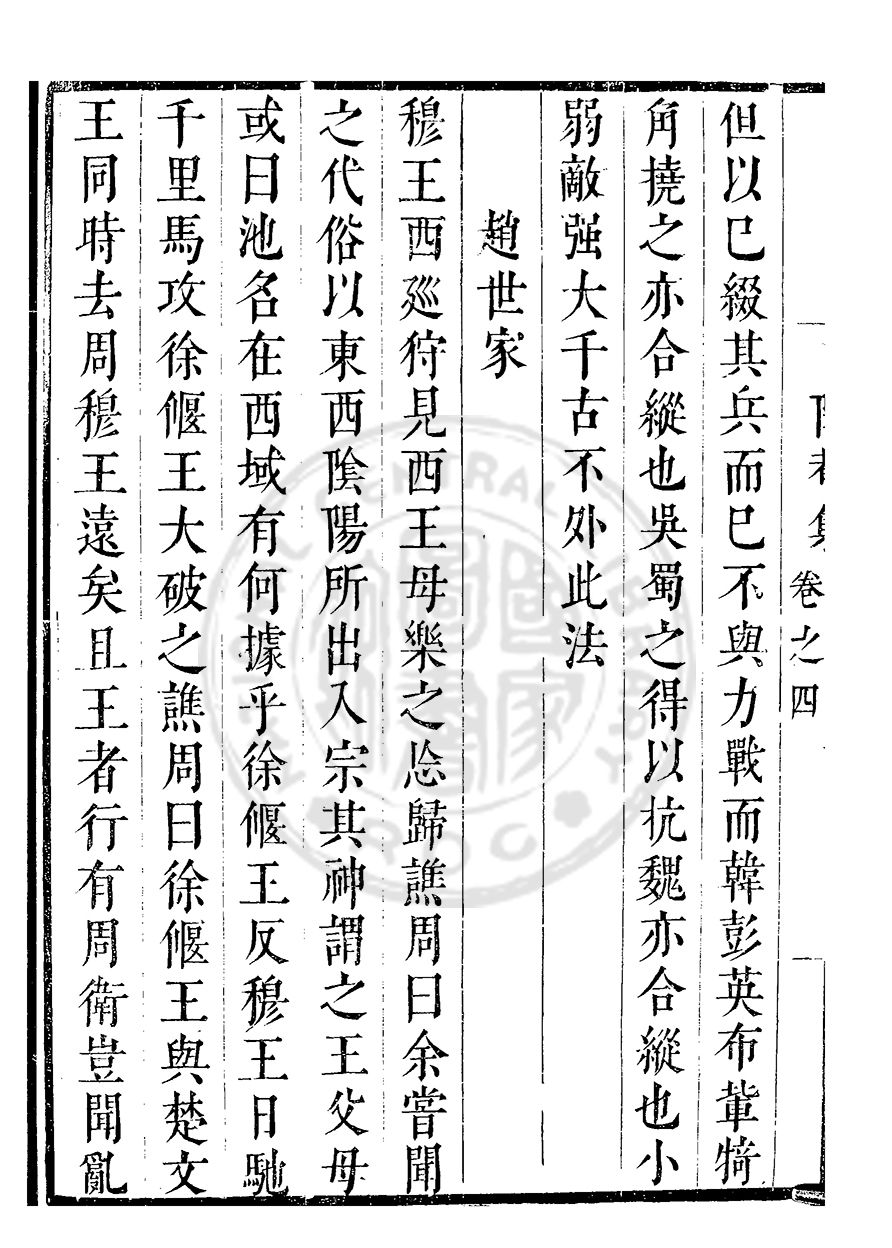 集卷之四
但以已綴其兵而已不與力戰而韓彭英布輩犄
角撓之亦合縱也吳蜀之得以抗魏亦合縱也小
弱敵强大千古不外此法
趙世家
穆王西廵狩見西王母樂之忘歸譙周曰余嘗聞
之代俗以東西陰陽所出入宗其神謂之王父母
或曰池名在西域有何據乎徐偃王反穆王日馳
千里馬攻徐偃王大破之譙周曰徐偃王與楚文
王同時去周穆王遠矣且王者行有周衛豈聞亂